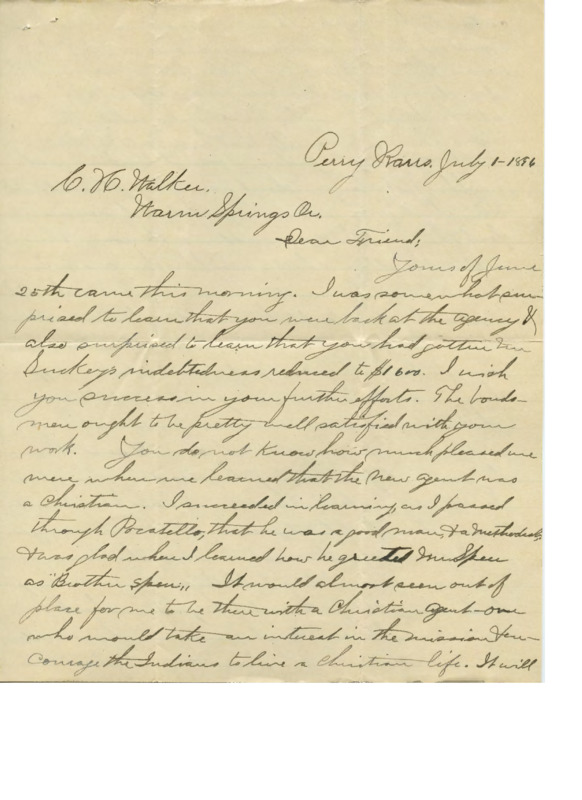 Perry Kans. July 1-1896
C. H. Walker.
Warm Springs Or.
Dear Friend;
Yours of June
25th came this morning. I was somewhat sur-
prised to learn that you were back at the agency &
also surprised to learn that you had gotten Mr
Luckeys indebtedness reduced to $1600. I wish
you success in your further efforts. The bonds-
men ought to be pretty well satisfied with your
work. You do not know how much pleased we
were when we learned that the new agent was
a Christian. I succeeded in learning, as I passed
through Pocatello, that he was a good man, & a Methodist,
& was glad when I learned how he greeted Mr Speer
as "Brother Speer,, It would almost seem out of
place for me to be there with a Christian agent - one
who would take an interest in the mission & en-
courage the Indians to live a Christian life. It will